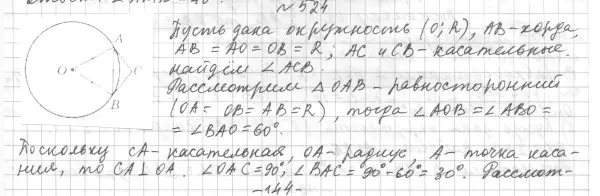 № 524
Пусть дана окружность (O; R), AB - хорда,
AB = AO = OB = R; AC и CB - касательные.
найдём ∠ACB.
Рассмотрим △OAB - равносторонний
(OA = OB = AB = R), тогда ∠AOB = ∠ABO =
= ∠BAO = 60°.
A
O
C
B
Поскольку CA - касательная, OA - радиус, A - точка каса-
ния, то CA ⊥ OA. ∠OAC = 90°, ∠BAC = 90° - 60° = 30°. Рассмот-
-144-